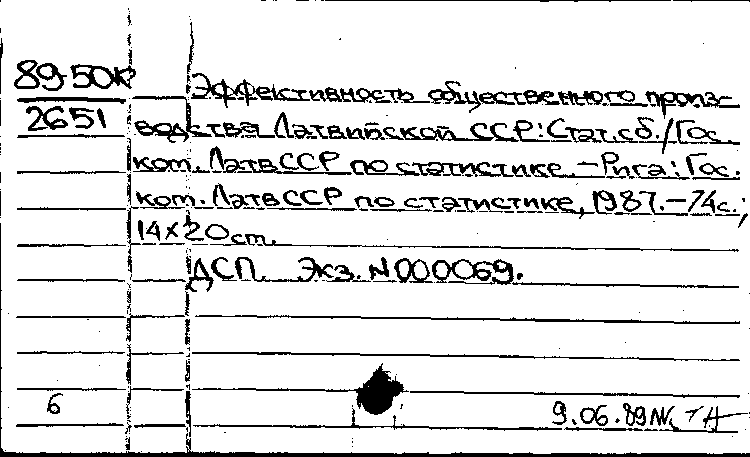 89-50к
2651
Эффективность общественного произ-
водства Латвийской ССР: Стат.сб./Гос.
ком. ЛатвССР по статистике.-Рига: Гос.
ком. ЛатвССР по статистике, 1987.-74с.;
14×20 ст.
ДСП. Экз. N000069.
6
9.06.89